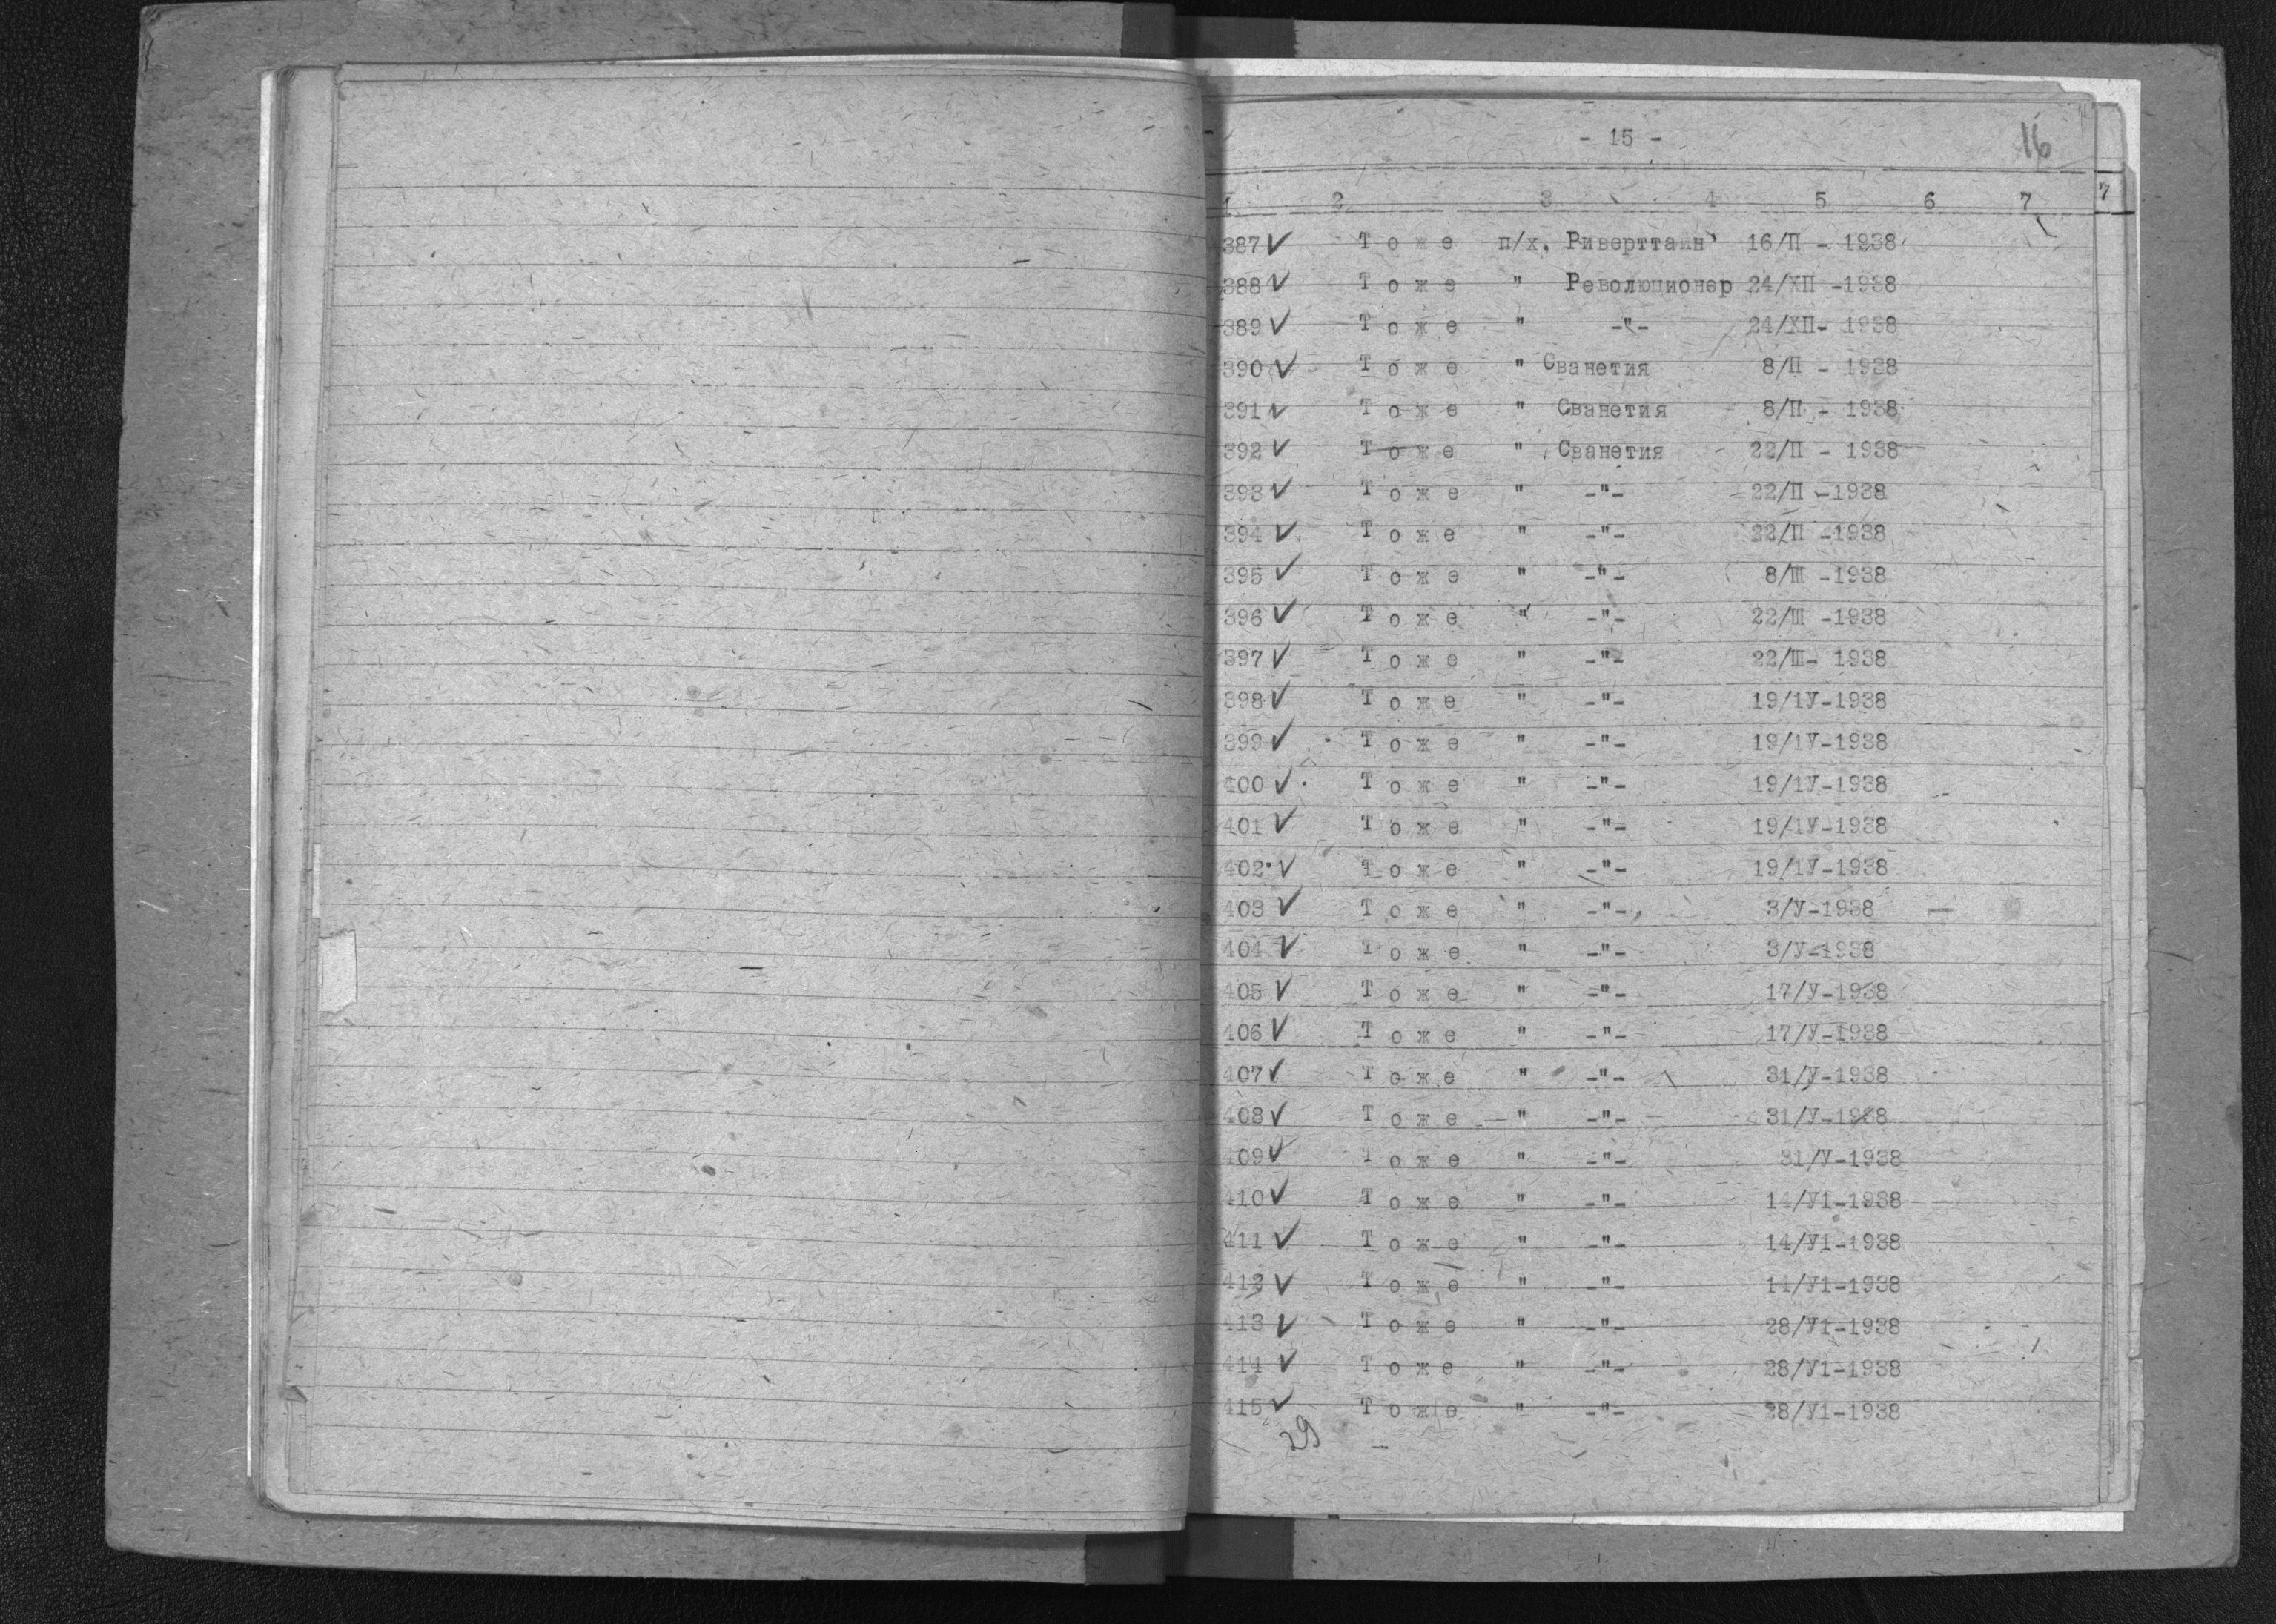 - 15 -
16
1 2 3 4 5 6 7
7
387 ✓ Т о ж е п/х. Риверттаин 16/П - 1938
388 ✓ Т о ж е " Революционер 24/ХП -1938
389 ✓ Т о ж е " -"- 24/ХП- 1938
390 ✓ Т о ж е " Сванетия 8/П - 1938
391 ✓ Т о ж е " Сванетия 8/П - 1938
392 ✓ Т о ж е " Сванетия 22/П - 1938
393 ✓ Т о ж е " -"- 22/П -1938
394 ✓ Т о ж е " -"- 22/П -1938
395 ✓ Т о ж е " -"- 8/Ш -1938
396 ✓ Т о ж е " -"- 22/Ш -1938
397 ✓ Т о ж е " -"- 22/Ш- 1938
398 ✓ Т о ж е " -"- 19/1У-1938
399 ✓ Т о ж е " -"- 19/1У-1938
400 ✓ Т о ж е " -"- 19/1У-1938
401 ✓ Т о ж е " -"- 19/1У-1938
402 ✓ Т о ж е " -"- 19/1У-1938
403 ✓ Т о ж е " -"- 3/У-1938
404 ✓ Т о ж е " -"- 3/У-1938
405 ✓ Т о ж е " -"- 17/У-1938
406 ✓ Т о ж е " -"- 17/У-1938
407 ✓ Т о ж е " -"- 31/У-1938
408 ✓ Т о ж е " -"- 31/У-1938
409 ✓ Т о ж е " -"- 31/У-1938
410 ✓ Т о ж е " -"- 14/У1-1938
411 ✓ Т о ж е " -"- 14/У1-1938
412 ✓ Т о ж е " -"- 14/У1-1938
413 ✓ Т о ж е " -"- 28/У1-1938
414 ✓ Т о ж е " -"- 28/У1-1938
415 ✓ Т о ж е " -"- 28/У1-1938
29